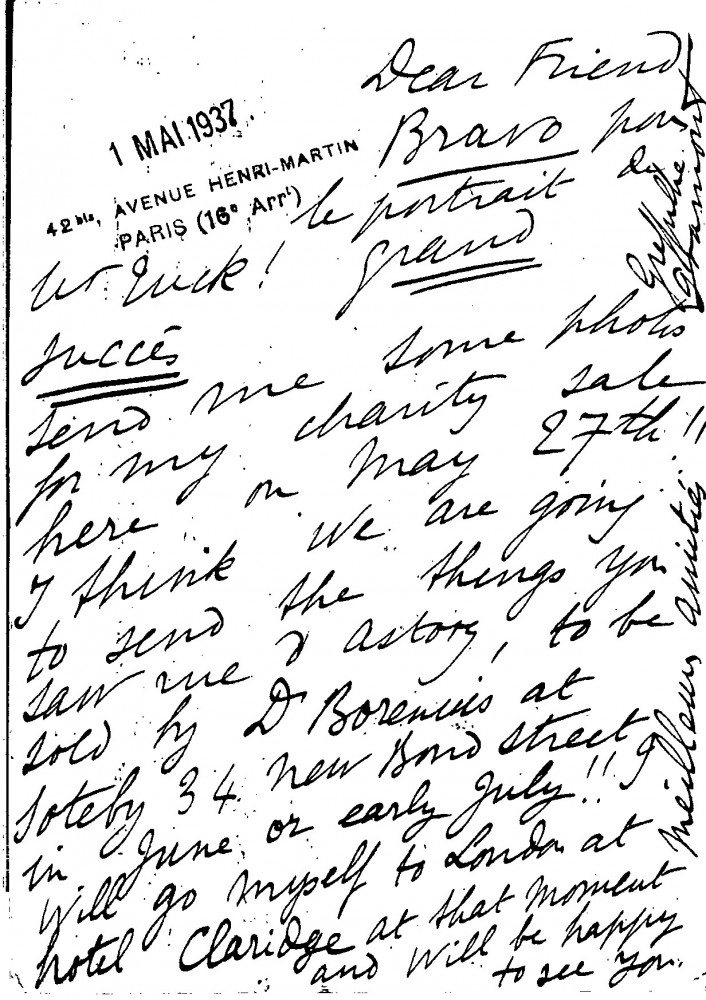 1 MAI.1937.
42 bis, AVENUE HENRI-MARTIN
PARIS (16e Arrt)
Dear Friend
Bravo pour
le portrait de
Greffulhe
luck! grand
succès
send me some photos
for my charity sale
here on May 27th!!
I think we are going
to send the things you
saw me to be
sold by D Borenius at
Soteby 34 new Bond street,
in June or early July!! I
will go myself to London at
hotel Claridge at that moment
and will be happy
to see you.
meilleurs amitiés